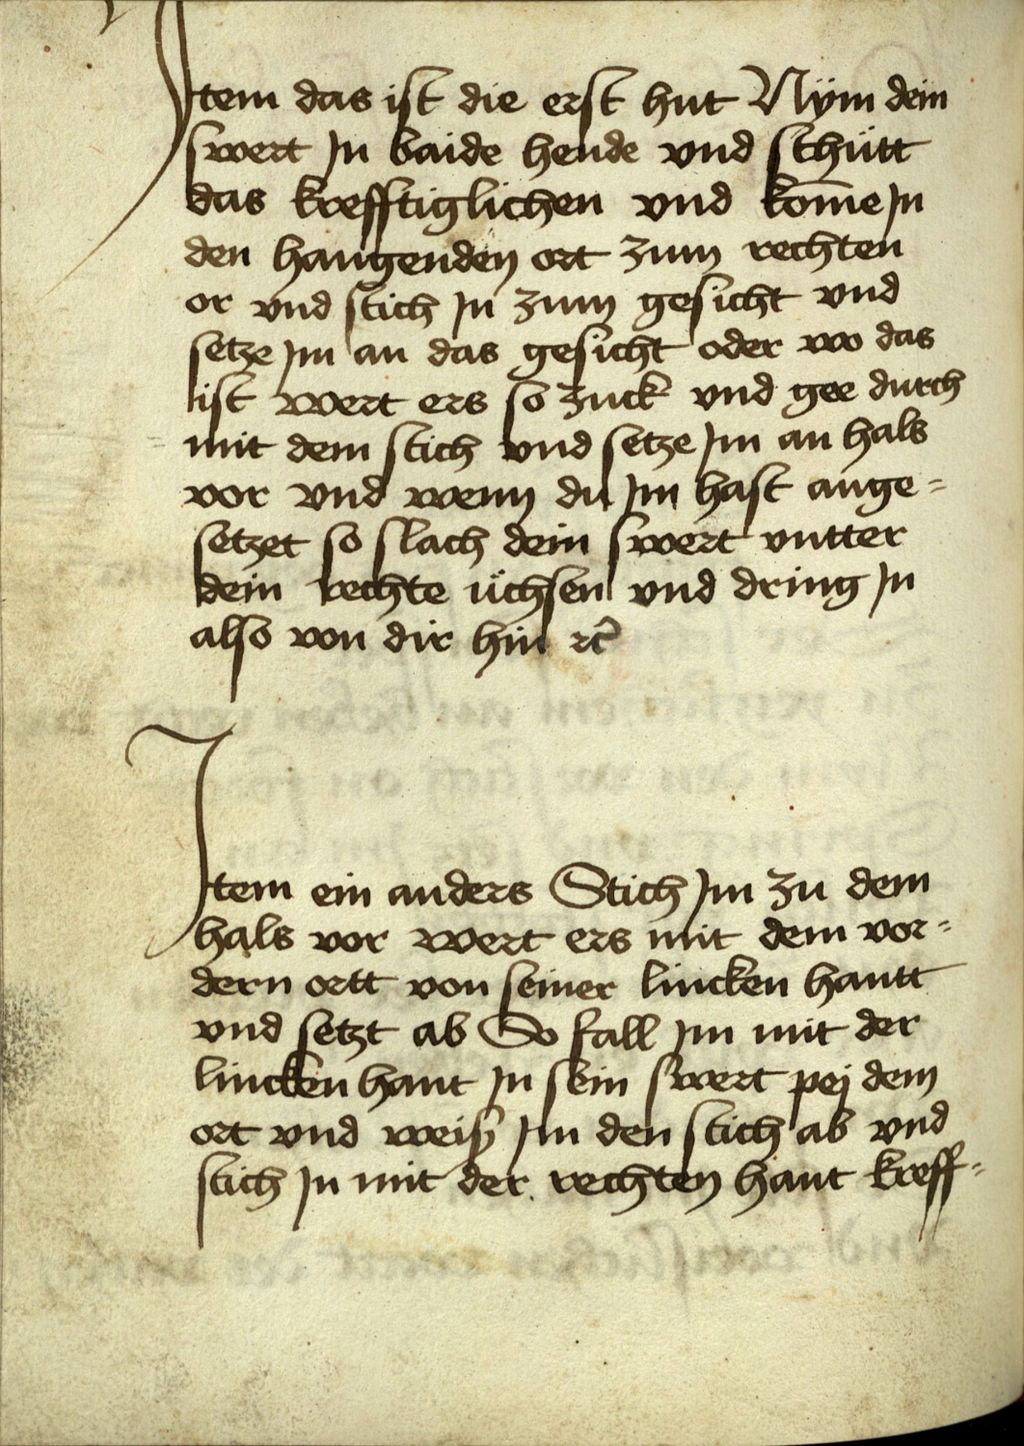 Item das ist die erst hut Nÿm dein
swert Jn baide hende vnd schütt
das krefftiglichen vnd kom̄e Jn
den hangenden ort zum rechten
or vnd stich Jn zum gesicht vnd
setze Jm an das gesicht oder wo das
ist wert ers so zuck vnd gee durch
mit dem stich vnd setze Jm an hals
vor vnd wenn du Jm hast ange=
setzet so slach dein swert vntter
dein rechte üchsen vnd dring Jn
also von dir hin rc̄
Item ein anders Stich Jm zu dem
hals vor wert ers mit dem vor=
dern ortt von seiner lincken hantt
vnd setzt ab So fall Jm mit der
lincken hant Jn sein swert pej dem
ort vnd weiß Jm den stich ab vnd
stich Jn mit der rechten hant kreff=